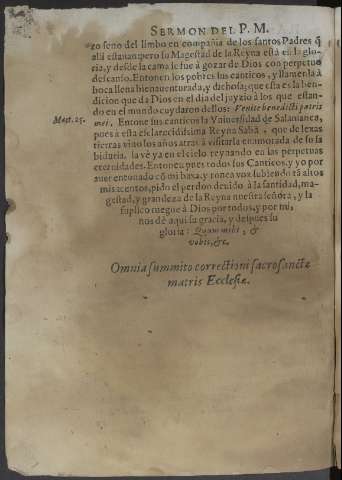 SERMON DEL P. M.
ro seno del limbo en compañia de los santos Padres q̃
allà estauan: pero su Magestad de la Reyna està en la glo-
ria, y desde la cama se fue à gozar de Dios con perpetuo
descanso. Entonen los pobres sus canticos, y llamenla à
boca llena bienauenturada, y dichosa; que esta es la ben-
dicion que da Dios en el dia del juyzio à los que estan-
do en el mundo cuydaron dellos: Venite benedicti patris
Mat. 25. mei. Entone sus canticos la Vniuersidad de Salamanca,
pues a esta esclarecidissima Reyna Sabà, que de lexas
tierras vino los años atras à visitarla enamorada de su sa
biduria, la vé ya en el cielo reynando en las perpetuas
eternidades. Entonen pues todos los Canticos, y yo por
auer entonado cõ mi baxa, y ronca voz subiendo tã altos
mis acentos, pido el perdon deuido à la santidad, ma-
gestad, y grandeza de la Reyna nuestra señora, y la
suplico ruegue à Dios por todos, y por mi,
nos dè aqui su gracia, y despues su
gloria: Quam mihi, &
vobis, &c.
Omnia summito correctioni sacrosanctæ
matris Ecclesiæ.